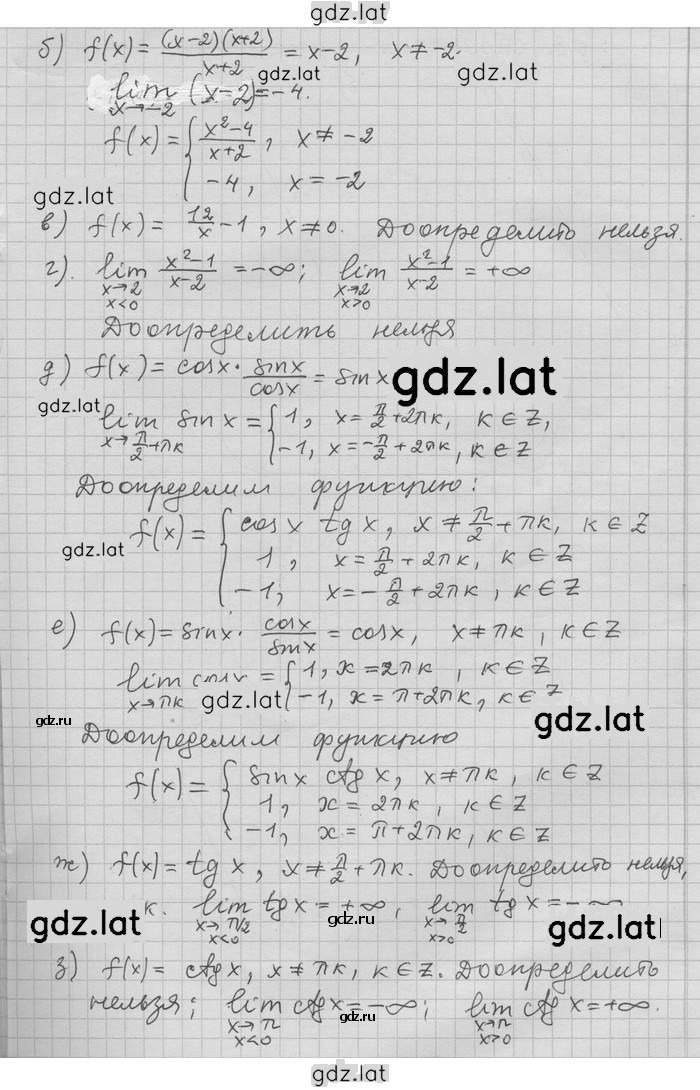 gdz.lat
б) f(x) = (x-2)(x+2)/x+2 = x-2, x ≠ -2.
gdz.lat gdz.lat
lim x→-2 (x-2) = -4.
f(x) = { x²-4/x+2, x ≠ -2
-4, x = -2
gdz.lat
в) f(x) = 12/x - 1, x ≠ 0. Доопределить нельзя.
г). lim x→2 x<0 x²-1/x-2 = -∞; lim x→2 x>0 x²-1/x-2 = +∞
Доопределить нельзя
д) f(x) = cosx · sinx/cosx = sinx
gdz.lat
gdz.lat
lim x→π/2+πк sin x = { 1, x = π/2+2πк, к ∈ Z,
-1, x = -π/2 + 2πк, к ∈ Z
Доопределим функцию:
gdz.lat
f(x) = { cos x tg x, x ≠ π/2 + πк, к ∈ Z
1, x = π/2 + 2πк, к ∈ Z
-1, x = -π/2 + 2πк, к ∈ Z
е) f(x) = sinx · cosx/sinx = cosx, x ≠ πк, к ∈ Z
lim x→πк cosx = { 1, x = 2πк, к ∈ Z
-1, x = π+2πк, к ∈ Z
gdz.ru gdz.lat gdz.lat
Доопределим функцию
f(x) = { sinx ctg x, x ≠ πк, к ∈ Z
gdz.ru
1, x = 2πк, к ∈ Z
-1, x = π+2πк, к ∈ Z
ж) f(x) = tg x, x ≠ π/2 + πк. Доопределить нельзя,
gdz.lat к. lim x→π/2 x<0 tg x = +∞, lim x→π/2 x>0 tg x = -∞
gdz.ru gdz.lat
з) f(x) = ctg x, x ≠ πк, к ∈ Z. Доопределить
нельзя; lim x→π x<0 ctg x = -∞; lim x→π x>0 ctg x = +∞.
gdz.ru
gdz.lat